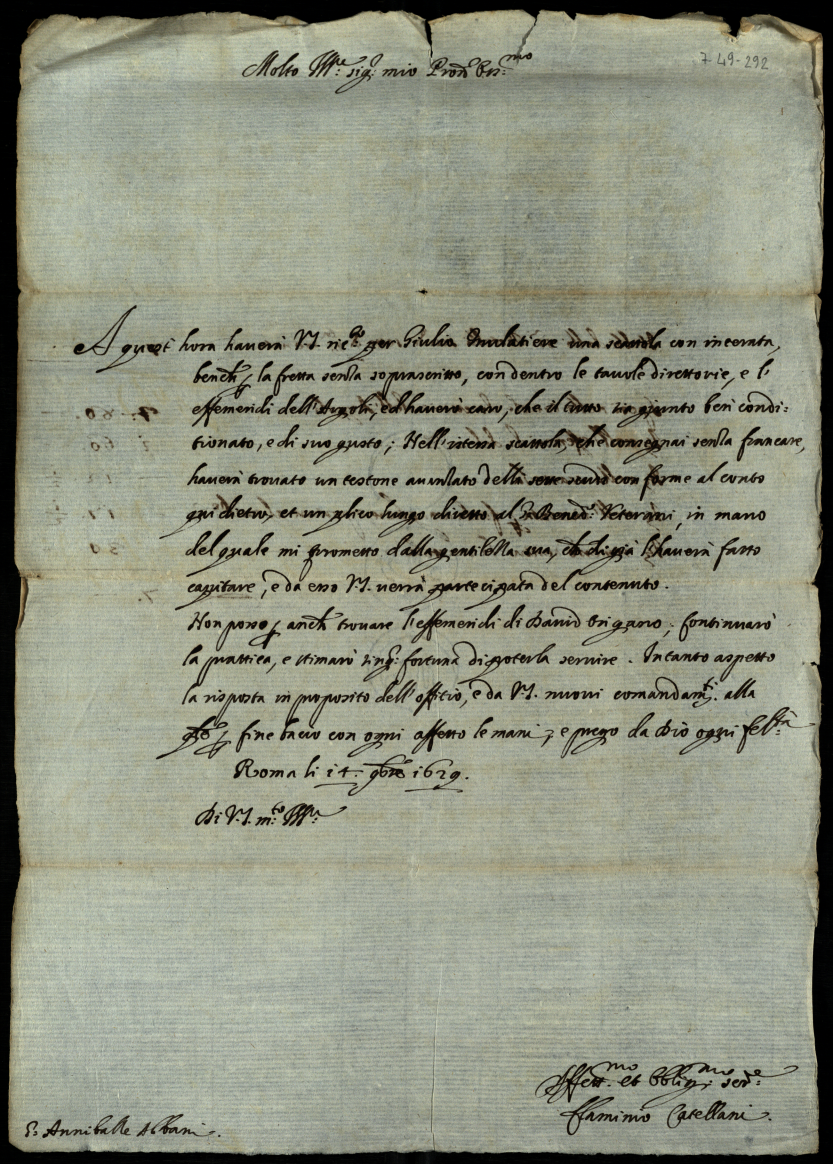 7-49-292
Molto Ill.re sig.r mio Pron oss.mo
A quest' hora haverà V.S. ric.to per Giulio Mulatiere una scattola con incerata,
bench p la fretta senza soprascritto, con dentro le tavole direttorie, e l'
effemeridi dell'Argoli, ed haverò caro, che il tutto sia giunto ben condi:
tionato, e di suo gusto; Nell'istessa scattola, che consegnai senza francare,
haverà trovato un testone avanzato delli sette scudi conforme al conto
qui dietro, et un plico lungo diretto al S.r Bened.o Veterani, in mano
del quale mi prometto dalla gentilezza sua, ch di già l'haverà fatto
capitare, e da esso V.S. verrà partecipata del contenuto.
Non posso p anch trovare l'effemeridi di David Origano; Continuarò
la prattica, e stimarò sing.r fortuna di poterla servire. Intanto aspetto
la risposta in proposito dell'offitio, e da V.S. nuovi comandam.ti alla
qle p fine bacio con ogni affetto le mani, e prego da Dio ogni fel.tà
Roma li 14. 9bre 1629.
Di V.S. m.to Ill.re
Affett.mo et Oblig.mo ser.e
Flaminio Catellani.
S. Anniballe Albani.